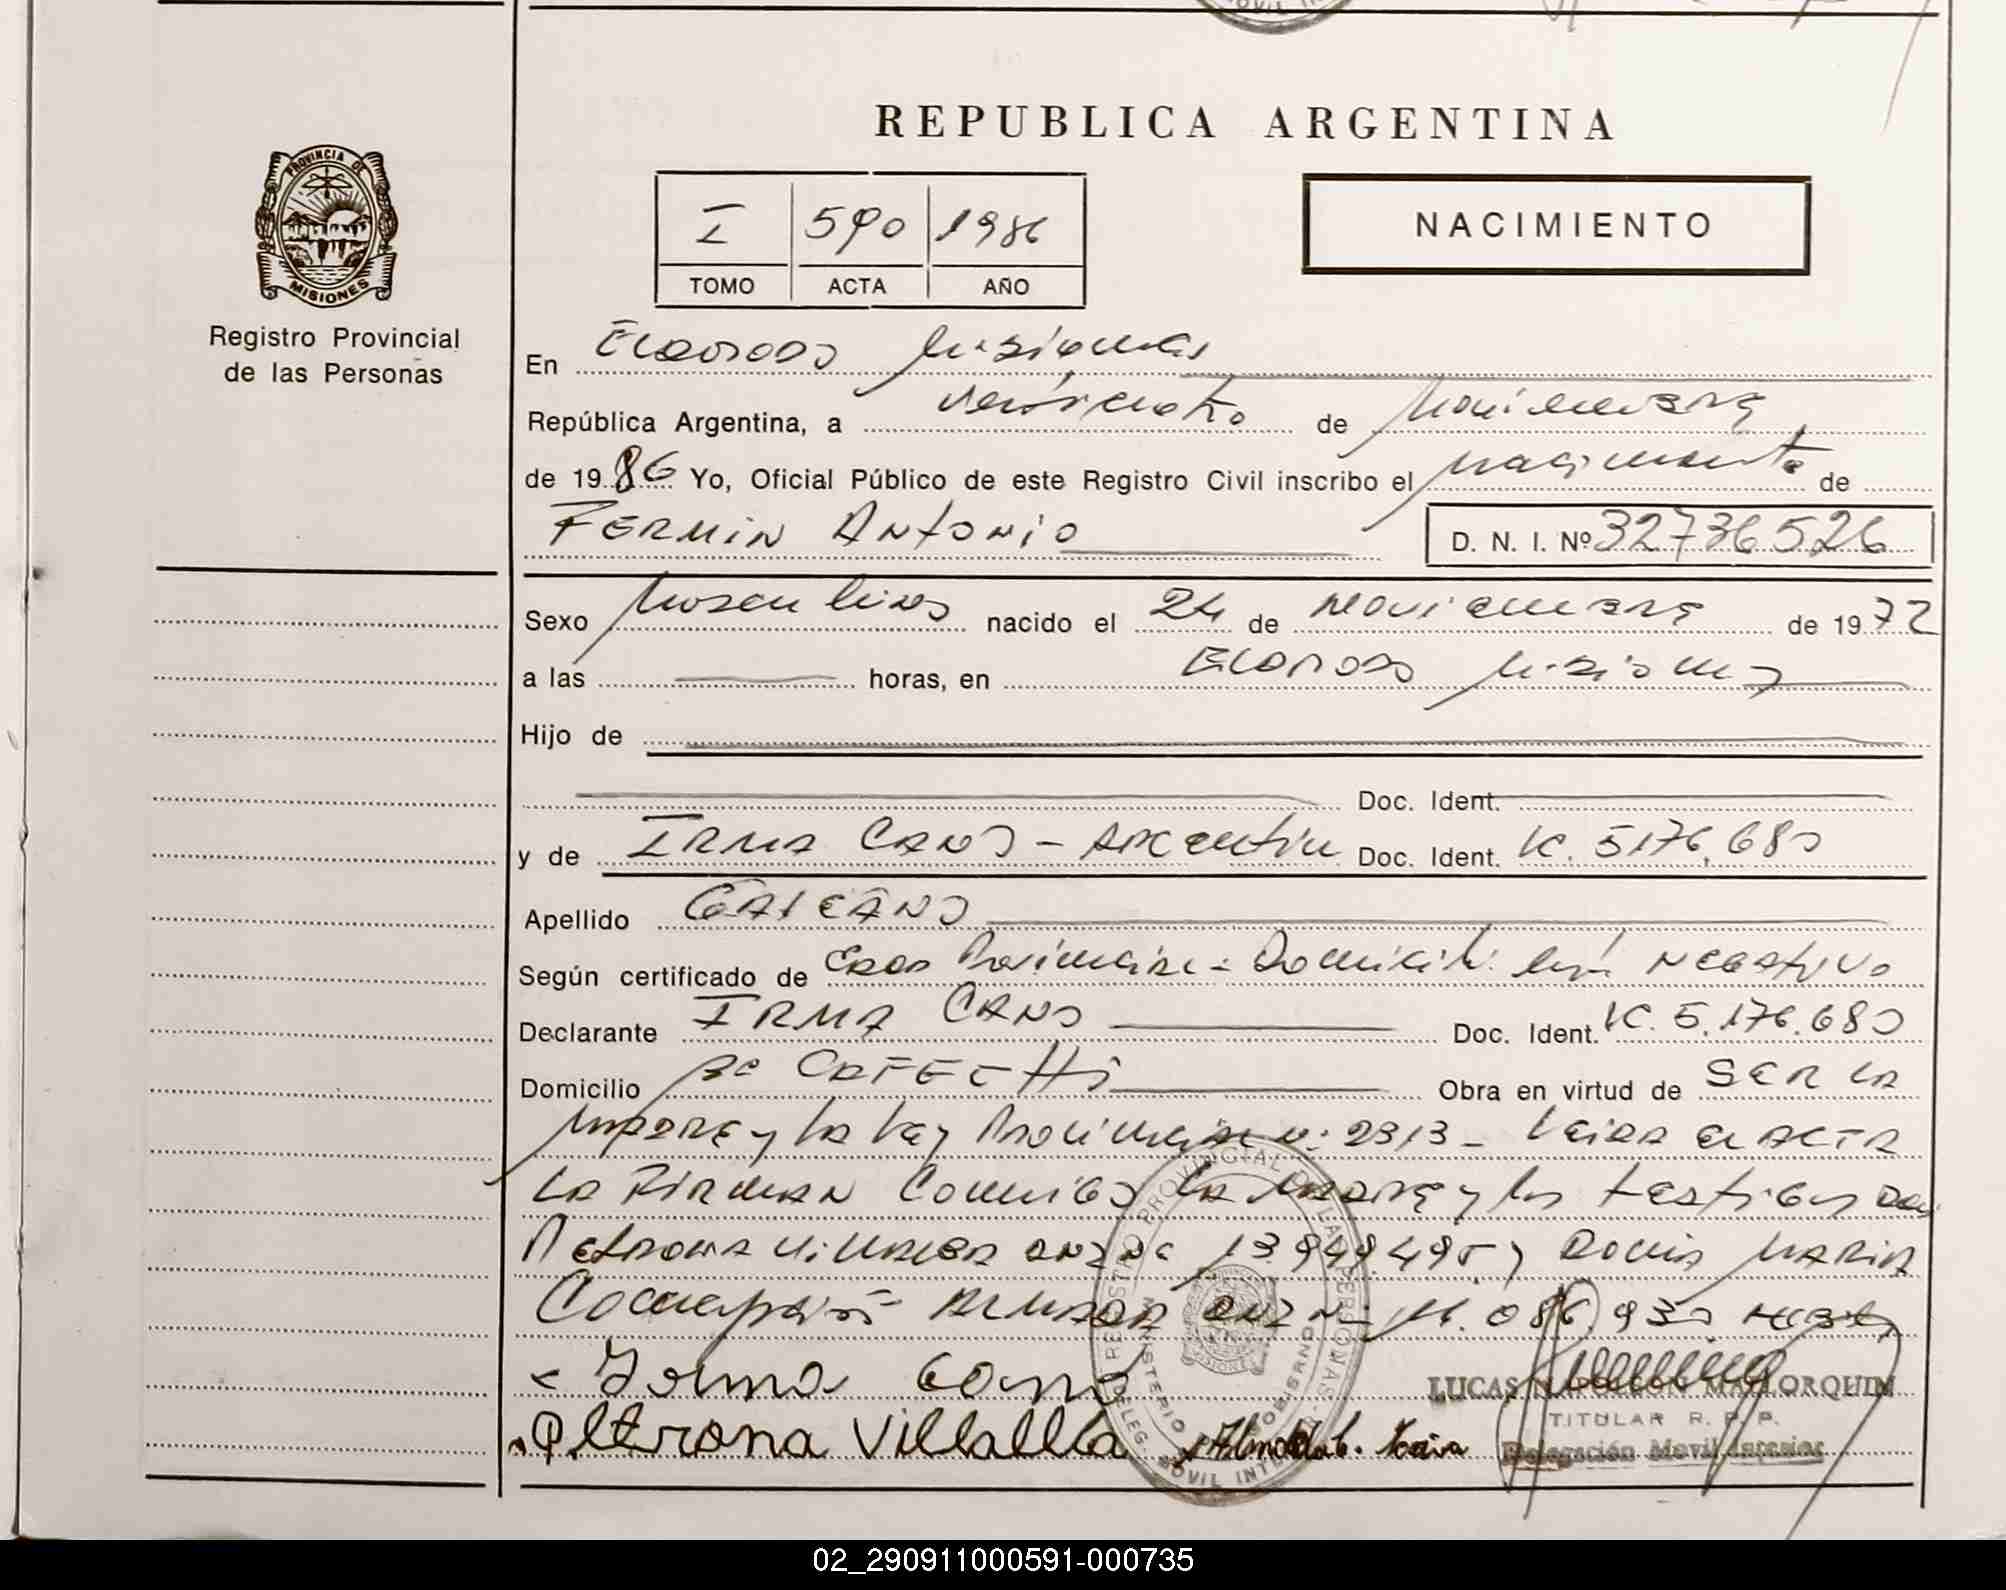 REPUBLICA ARGENTINA
PROVINCIA DE
MISIONES
Registro Provincial
de las Personas
I 590 1986
TOMO ACTA AÑO
NACIMIENTO
En Eldorado Misiones
República Argentina, a de Noviembre
de 1986 Yo, Oficial Público de este Registro Civil inscribo el nacimiento de
FERMIN ANTONIO D. N. I. Nº 32736526
Sexo Masculino nacido el 24 de Noviembre de 1972
a las horas, en Eldorado Misiones
Hijo de
Doc. Ident.
y de IRMA CANO - Argentina Doc. Ident. 5.176.680
Apellido GALEANO
Según certificado de Domicilio Negativo
Declarante IRMA CANO Doc. Ident. 5.176.680
Domicilio Obra en virtud de SER LA
Madre y la Ley Provincial Nº 2313 - Leida el ACTA
LA FIRMAN Conmigo la Madre y los testigos Doña
Petrona Villalba DNI Nº 13.949.495 y Doña MARIA
DNI Nº
Irma Cano
LUCAS MALLORQUIN
TITULAR R. P. P.
Delegación Movil Interior
Petrona Villallba
REGISTRO PROVINCIAL DE LAS PERSONAS
MINISTERIO GOBIERNO
DELEG. MOVIL INT
02_290911000591-000735